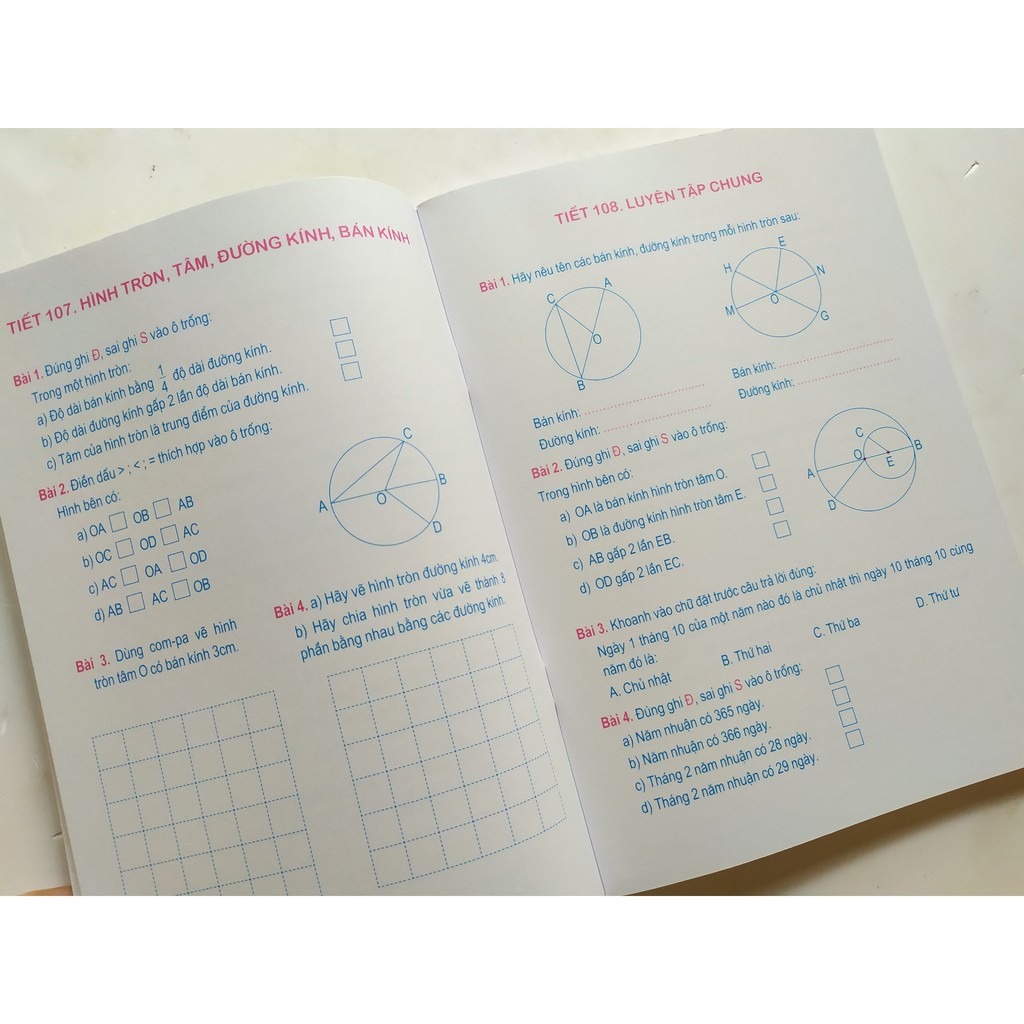 TIẾT 107. HÌNH TRÒN, TÂM, ĐƯỜNG KÍNH, BÁN KÍNH
Bài 1. Đúng ghi Đ, sai ghi S vào ô trống:
Trong một hình tròn:
a) Độ dài bán kính bằng 1/4 độ dài đường kính.
b) Độ dài đường kính gấp 2 lần độ dài bán kính.
c) Tâm của hình tròn là trung điểm của đường kính.
Bài 2. Điền dấu > ; < ; = thích hợp vào ô trống:
Hình bên có:
a) OA □ OB □ AB
b) OC □ OD □ AC
c) AC □ OA □ OD
d) AB □ AC □ OB
C
A
O
B
D
Bài 3. Dùng com-pa vẽ hình
tròn tâm O có bán kính 3cm.
Bài 4. a) Hãy vẽ hình tròn đường kính 4cm.
b) Hãy chia hình tròn vừa vẽ thành 8
phần bằng nhau bằng các đường kính.
TIẾT 108. LUYỆN TẬP CHUNG
Bài 1. Hãy nêu tên các bán kính, đường kính trong mỗi hình tròn sau:
C
A
O
B
E
H
N
O
M
G
Bán kính: ................................
Đường kính: ................................
Bán kính: ................................
Đường kính: ................................
Bài 2. Đúng ghi Đ, sai ghi S vào ô trống:
Trong hình bên có:
a) OA là bán kính hình tròn tâm O.
b) OB là đường kính hình tròn tâm E.
c) AB gấp 2 lần EB.
d) OD gấp 2 lần EC.
C
O
B
E
A
D
Bài 3. Khoanh vào chữ đặt trước câu trả lời đúng:
Ngày 1 tháng 10 của một năm nào đó là chủ nhật thì ngày 10 tháng 10 cùng
năm đó là:
A. Chủ nhật B. Thứ hai C. Thứ ba D. Thứ tư
Bài 4. Đúng ghi Đ, sai ghi S vào ô trống:
a) Năm nhuận có 365 ngày.
b) Năm nhuận có 366 ngày.
c) Tháng 2 năm nhuận có 28 ngày.
d) Tháng 2 năm nhuận có 29 ngày.